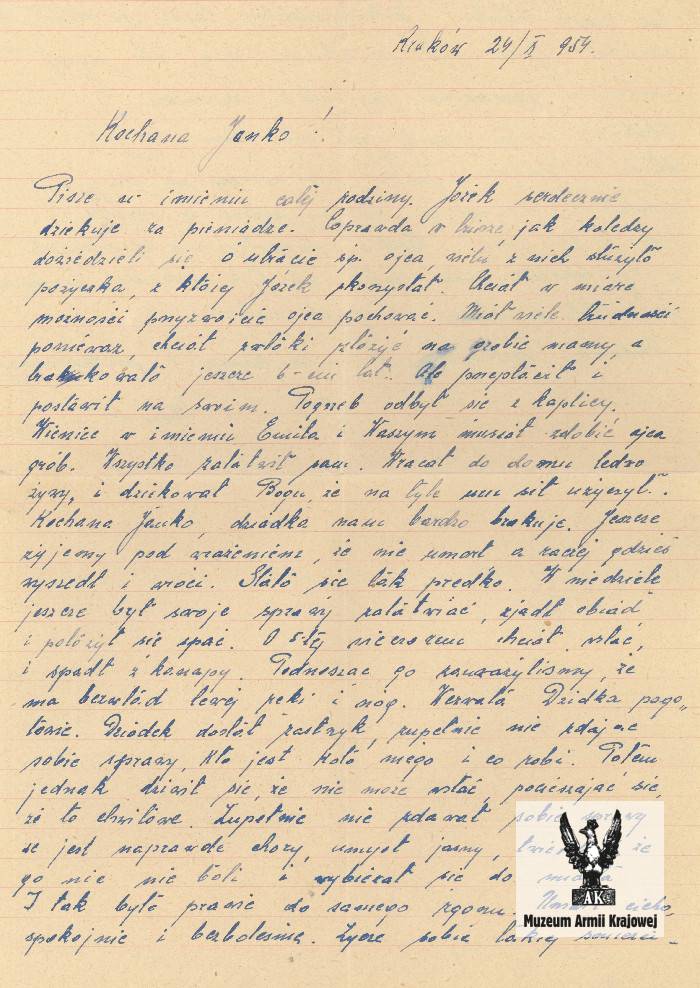 Kraków 24/X 954.
Kochana Janko!
Pisze w imieniu całej rodziny. Jożek serdecznie
dziekuje za pieniadze. Coprawda v biurze, jak koledzy
dowiedzieli się o utracie śp. ojca, wielu z nich służyło
pożyczka, z której Józek skorzystał. Chciał w miare
możności przyzwoicie ojca pochować. Miał wiele trudności
ponieważ, chciał zwłoki złożyć na grobie mamy, a
brakowało jeszcze 6-ciu lat. Ale przepłacił i
postawił na swoim. Pogrzeb odbył sie z kaplicy.
Wieniec w imieniu Emila i Waszym musiał zdobić ojca
grób. Wszystko załatwił sam. Wracał do domu ledwo
żywy, i dziekował Bogu, że na tyle mu sił użyczył.
Kochana Janko, dziadka nam bardzo brakuje. Jeszcze
żyjemy pod wrażeniem, że nie umarł a raczej gdzieś
wyszedł i wróci. Stało sie tak predko. W niedziele
jeszcze był swoje sprawy załatwiać, zjadł obiad
i położył sie spać. O 5-tej wieczorem chciał wstać,
i spadł z kanapy. Podnosząc go zauważyliśmy, że
ma bezwład lewej reki i nog. Wezwała Dzidka pogo„
towie. Dziadek dostał zastrzyk, zupełnie nie zdajac
sobie sprawy, kto jest koło niego i co robi. Potem
jednak dziwił sie, że nie może wstać, pocieszajac sie,
że to chwilowe. Zupełnie nie zdawał sobie sprawy
że jest naprawde chory, umysł jasny, że
go nic nie boli i wybierał sie do miasta.
I tak było prawie do samego zgonu. Umarł cicho,
spokojnie i bezboleśnie. Życze sobie takiej śmierci -
AK
Muzeum Armii Krajowej